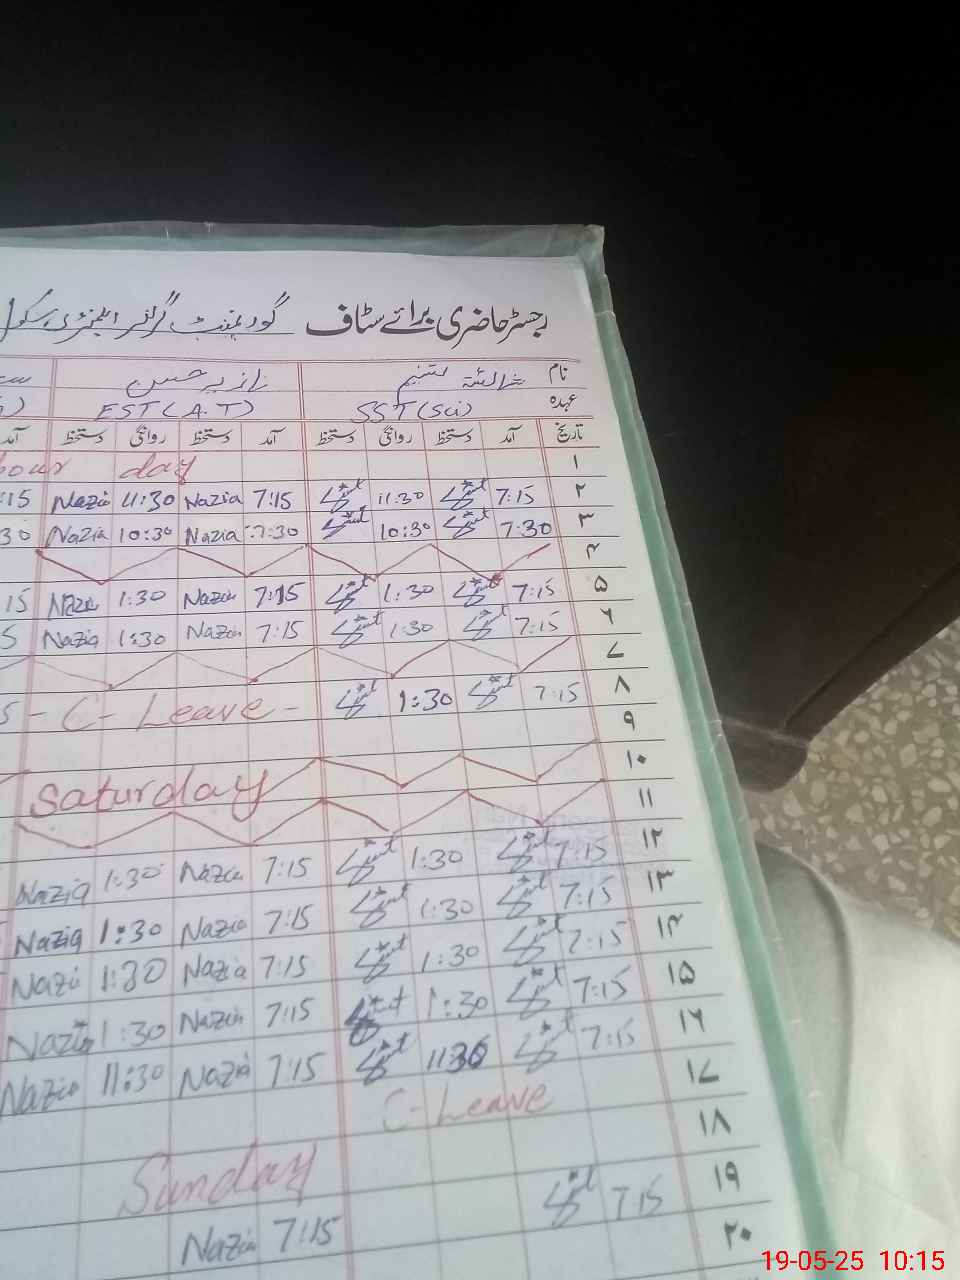 رجسٹر حاضری برائے سٹاف گورنمنٹ گرلز ایلیمنٹری سکول
نام
عہدہ SST (Sci) EST (A.T)
تاریخ آمد دستخط روانگی دستخط آمد دستخط روانگی دستخط آمد
۱ bour day
۲ 7:15 11:30 7:15 Nazia 11:30 Nazia :15
۳ 7:30 10:30 7:30 Nazia 10:30 Nazia 30
۴
۵ 7:15 1:30 7:15 Nazia 1:30 Nazia 15
۶ 7:15 1:30 7:15 Nazia 1:30 Nazia 5
۷
۸ 7:15 1:30 - C- Leave - 5
۹
۱۰ Saturday
۱۱
۱۲ 7:15 1:30 7:15 Nazia 1:30 Nazia
۱۳ 7:15 1:30 7:15 Nazia 1:30 Nazia
۱۴ 7:15 1:30 7:15 Nazia 1:30 Nazia
۱۵ 7:15 1:30 7:15 Nazia 1:30 Nazia
۱۶ 7:15 11:30 7:15 Nazia 11:30 Nazia
۱۷ C- Leave
۱۸ Sunday
۱۹ 7:15 7:15 Nazia
۲۰
19-05-25 10:15